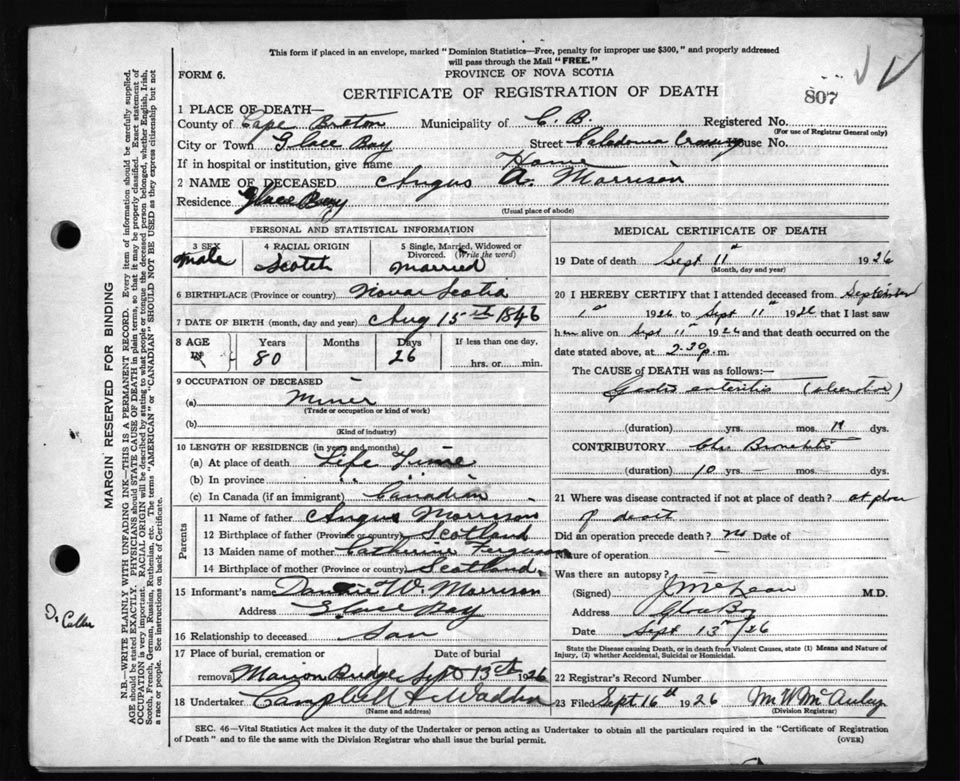 This form if placed in an envelope, marked "Dominion Statistics—Free, penalty for improper use $300," and properly addressed
will pass through the Mail "FREE."
FORM 6.
PROVINCE OF NOVA SCOTIA
CERTIFICATE OF REGISTRATION OF DEATH
807
1 PLACE OF DEATH—
County of Cape Breton Municipality of C. B. Registered No.
(For use of Registrar General only)
City or Town Glace Bay Street Caledonia Crossing House No.
If in hospital or institution, give name Home
2 NAME OF DECEASED Angus A. Morrison
Residence Glace Bay
(Usual place of abode)
PERSONAL AND STATISTICAL INFORMATION
3 SEX 4 RACIAL ORIGIN 5 Single, Married, Widowed or
Divorced. (Write the word)
Male Scotch Married
6 BIRTHPLACE (Province or country) Nova Scotia
7 DATE OF BIRTH (month, day and year) Aug 15th 1846
8 AGE Years Months Days If less than one day,
80 26 hrs. or min.
9 OCCUPATION OF DECEASED
(a) Miner
(Trade or occupation or kind of work)
(b)
(Kind of industry)
10 LENGTH OF RESIDENCE (in years and months)
(a) At place of death Life Time
(b) In province " "
(c) In Canada (if an immigrant) Canadian
Parents
11 Name of father Angus Morrison
12 Birthplace of father (Province or country) Scotland
13 Maiden name of mother Catherine Ferguson
14 Birthplace of mother (Province or country) Scotland
15 Informant's name W. Morrison
Address Glace Bay
16 Relationship to deceased Son
17 Place of burial, cremation or Date of burial
removal Marion Bridge Sept 13th 1926
18 Undertaker Campbell & Wadden
(Name and address)
MEDICAL CERTIFICATE OF DEATH
19 Date of death Sept 11th 1926
(Month, day and year)
20 I HEREBY CERTIFY that I attended deceased from September
1st 1926 to Sept 11th 1926 that I last saw
him alive on Sept 11th 1926 and that death occurred on the
date stated above, at 2.30 p.m.
The CAUSE of DEATH was as follows:
Gastro enteritis
(duration) yrs. mos. dys.
CONTRIBUTORY Chr Bronchitis
(duration) 10 yrs. — mos. — dys.
21 Where was disease contracted if not at place of death? at place
of death
Did an operation precede death? no Date of
Nature of operation —
Was there an autopsy?
(Signed) J McLean M.D.
Address Glace Bay
Date Sept 13th /26
State the Disease causing Death, or in death from Violent Causes, state (1) Means and Nature of
Injury, (2) whether Accidental, Suicidal or Homicidal.
22 Registrar's Record Number
23 Filed Sept 16th 1926 M W McAuley
(Division Registrar)
SEC. 46—Vital Statistics Act makes it the duty of the Undertaker or person acting as Undertaker to obtain all the particulars required in the "Certificate of Registration
of Death" and to file the same with the Division Registrar who shall issue the burial permit.
(OVER)
MARGIN RESERVED FOR BINDING
N.B.—WRITE PLAINLY WITH UNFADING INK—THIS IS A PERMANENT RECORD. Every item of information should be carefully supplied.
AGE should be stated EXACTLY. PHYSICIANS should STATE CAUSE OF DEATH in plain terms, so that it may be properly classified. Exact statement of
OCCUPATION is very important. RACIAL ORIGIN will be described by stating to what people or tongue the deceased person belonged, whether English, Irish,
Scotch, French, German, Russian, Ruthenian, etc. The terms "AMERICAN" or "CANADIAN" SHOULD NOT BE USED as they express citizenship but not
a race or people. See instructions on back of Certificate.